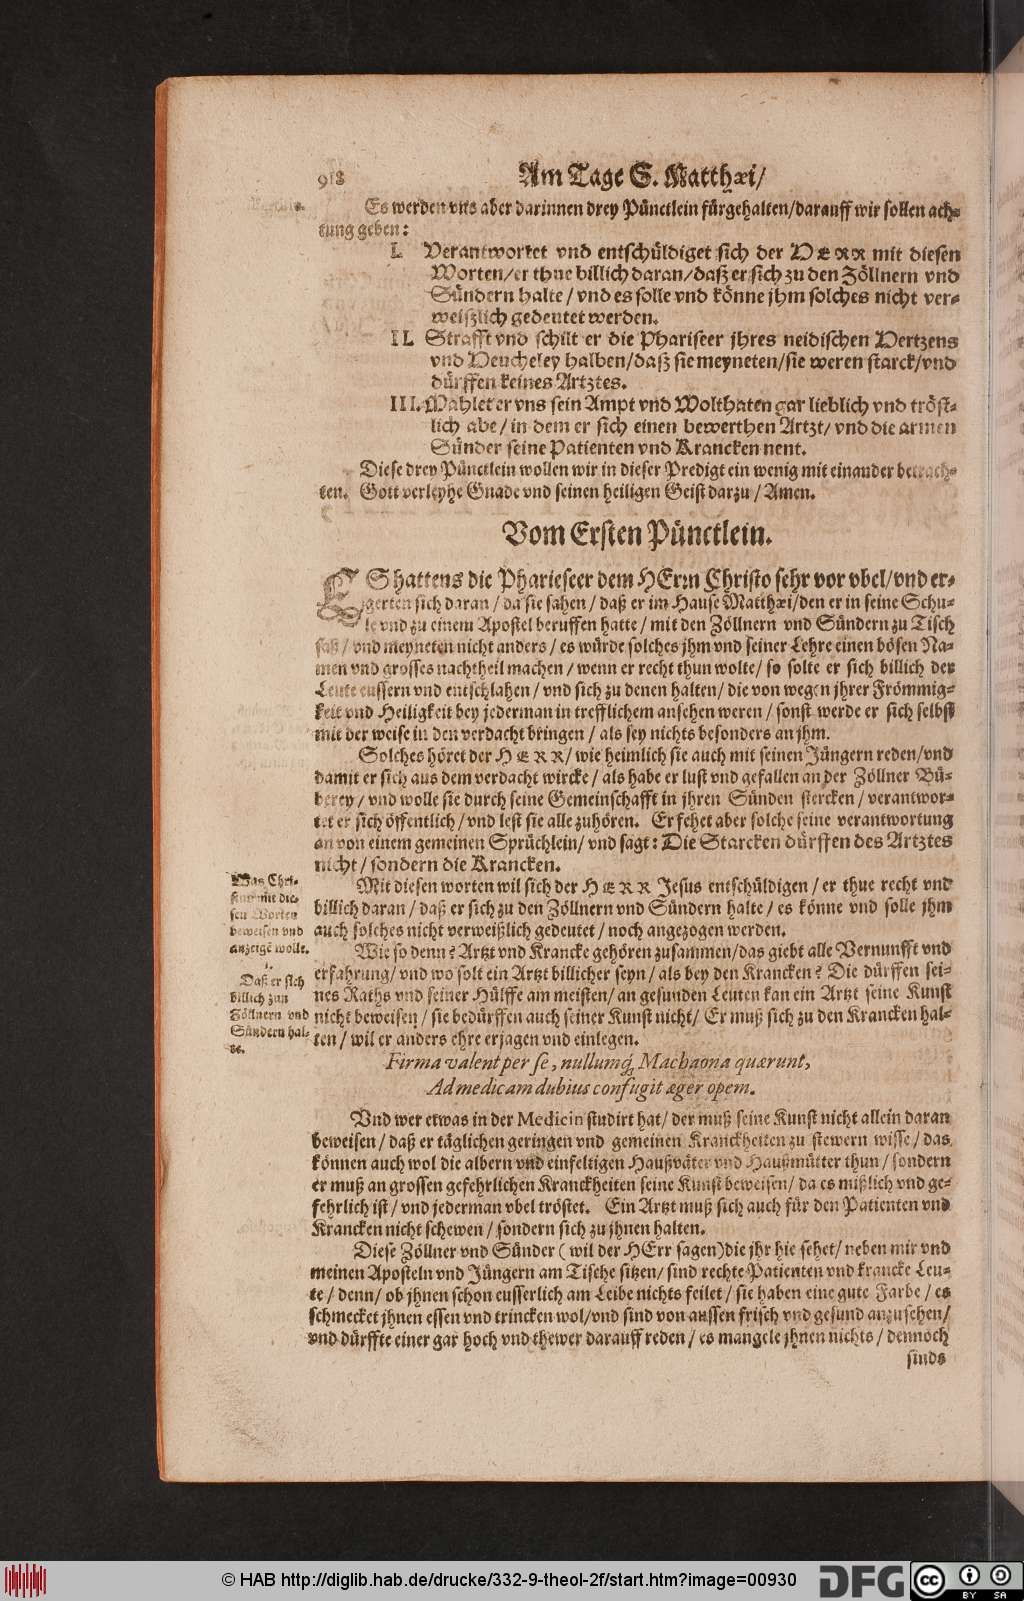 918
Am Tage S. Matthæi/
Es werden vns aber darinnen drey Pünctlein fürgehalten/darauff wir sollen ach-
tung geben:
I. Verantwortet vnd entschüldiget sich der HERR mit diesen
Worten/er thue billich daran/daß er sich zu den Zöllnern vnd
Sündern halte/vnd es solle vnd könne jhm solches nicht ver-
weißlich gedeutet werden.
II. Strafft vnd schilt er die Phariseer jhres neidischen Hertzens
vnd Heucheley halben/daß sie meyneten/sie weren starck/vnd
dürffen keines Artztes.
III. Mahlet er vns sein Ampt vnd Wolthaten gar lieblich vnd tröst-
lich abe/in dem er sich einen bewerthen Artzt/vnd die armen
Sünder seine Patienten vnd Krancken nent.
Diese drey Pünctlein wollen wir in dieser Predigt ein wenig mit einander betrach-
ten. Gott verleyhe Gnade vnd seinen heiligen Geist darzu/Amen.
Vom Ersten Pünctlein.
ES hattens die Pharieseer dem HErrn Christo sehr vor vbel/vnd er-
gerten sich daran/da sie sahen/daß er im Hause Matthæi/den er in seine Schu-
le vnd zu einem Apostel beruffen hatte/mit den Zöllnern vnd Sündern zu Tisch
saß/vnd meyneten nicht anders/es würde solches jhm vnd seiner Lehre einen bösen Na-
men vnd grosses nachtheil machen/wenn er recht thun wolte/so solte er sich billich der
Leute eussern vnd entschlahen/vnd sich zu denen halten/die von wegen jhrer Frömmig-
keit vnd Heiligkeit bey jederman in trefflichem ansehen weren/sonst werde er sich selbst
mit der weise in den verdacht bringen/als sey nichts besonders an jhm.
Solches höret der HERR/wie heimlich sie auch mit seinen Jüngern reden/vnd
damit er sich aus dem verdacht wircke/als habe er lust vnd gefallen an der Zöllner Bü-
berey/vnd wolle sie durch seine Gemeinschafft in jhren Sünden stercken/verantwor-
tet er sich öffentlich/vnd lest sie alle zuhören. Er fehet aber solche seine verantwortung
an von einem gemeinen Sprüchlein/vnd sagt: Die Starcken dürffen des Artztes
nicht/sondern die Krancken.
Was Chri-
stus mit die-
sen Worten
beweisen vnd
anzeigẽ wolle.
1.
Daß er sich
billich zun
Zöllnern vnd
Sündern hal-
te.
Mit diesen worten wil sich der HERR Jesus entschüldigen/er thue recht vnd
billich daran/daß er sich zu den Zöllnern vnd Sündern halte/es könne vnd solle jhm
auch solches nicht verweißlich gedeutet/noch angezogen werden.
Wie so denn? Artzt vnd Krancke gehören zusammen/das giebt alle Vernunfft vnd
erfahrung/vnd wo solt ein Artzt billicher seyn/als bey den Krancken? Die dürffen sei-
nes Raths vnd seiner Hülffe am meisten/an gesunden Leuten kan ein Artzt seine Kunst
nicht beweisen/sie bedürffen auch seiner Kunst nicht/Er muß sich zu den Krancken hal-
ten/wil er anders ehre erjagen vnd einlegen.
Firma valent per se, nullumq́; Machaona quærunt,
Ad medicam dubius confugit æger opem.
Vnd wer etwas in der Medicin studirt hat/der muß seine Kunst nicht allein daran
beweisen/daß er täglichen geringen vnd gemeinen Kranckheiten zu stewern wisse/das
können auch wol die albern vnd einfeltigen Haußväter vnd Haußmütter thun/sondern
er muß an grossen gefehrlichen Kranckheiten seine Kunst beweisen/da es mißlich vnd ge-
fehrlich ist/vnd jederman vbel tröstet. Ein Artzt muß sich auch für den Patienten vnd
Krancken nicht schewen/sondern sich zu jhnen halten.
Diese Zöllner vnd Sünder (wil der HErr sagen) die jhr hie sehet/neben mir vnd
meinen Aposteln vnd Jüngern am Tische sitzen/sind rechte Patienten vnd krancke Leu-
te/denn/ob jhnen schon eusserlich am Leibe nichts feilet/sie haben eine gute Farbe/es
schmecket jhnen essen vnd trincken wol/vnd sind von aussen frisch vnd gesund anzusehen/
vnd dürffte einer gar hoch vnd thewer darauff reden/es mangele jhnen nichts/dennoch
sinds
© HAB http://diglib.hab.de/drucke/332-9-theol-2f/start.htm?image=00930
DFG
cc
BY SA